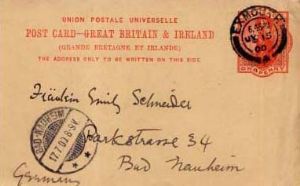 UNION POSTALE UNIVERSELLE
POST CARD—GREAT BRITAIN & IRELAND
(GRANDE BRETAGNE ET IRLANDE)
THE ADDRESS ONLY TO BE WRITTEN ON THIS SIDE.
EXMOUTH
JY 15
00
PENNY
Fräulein Emily Schneider
BAD NAUHEIM
17.7.00.
Parkstrasse 34
Bad Nauheim
Germany